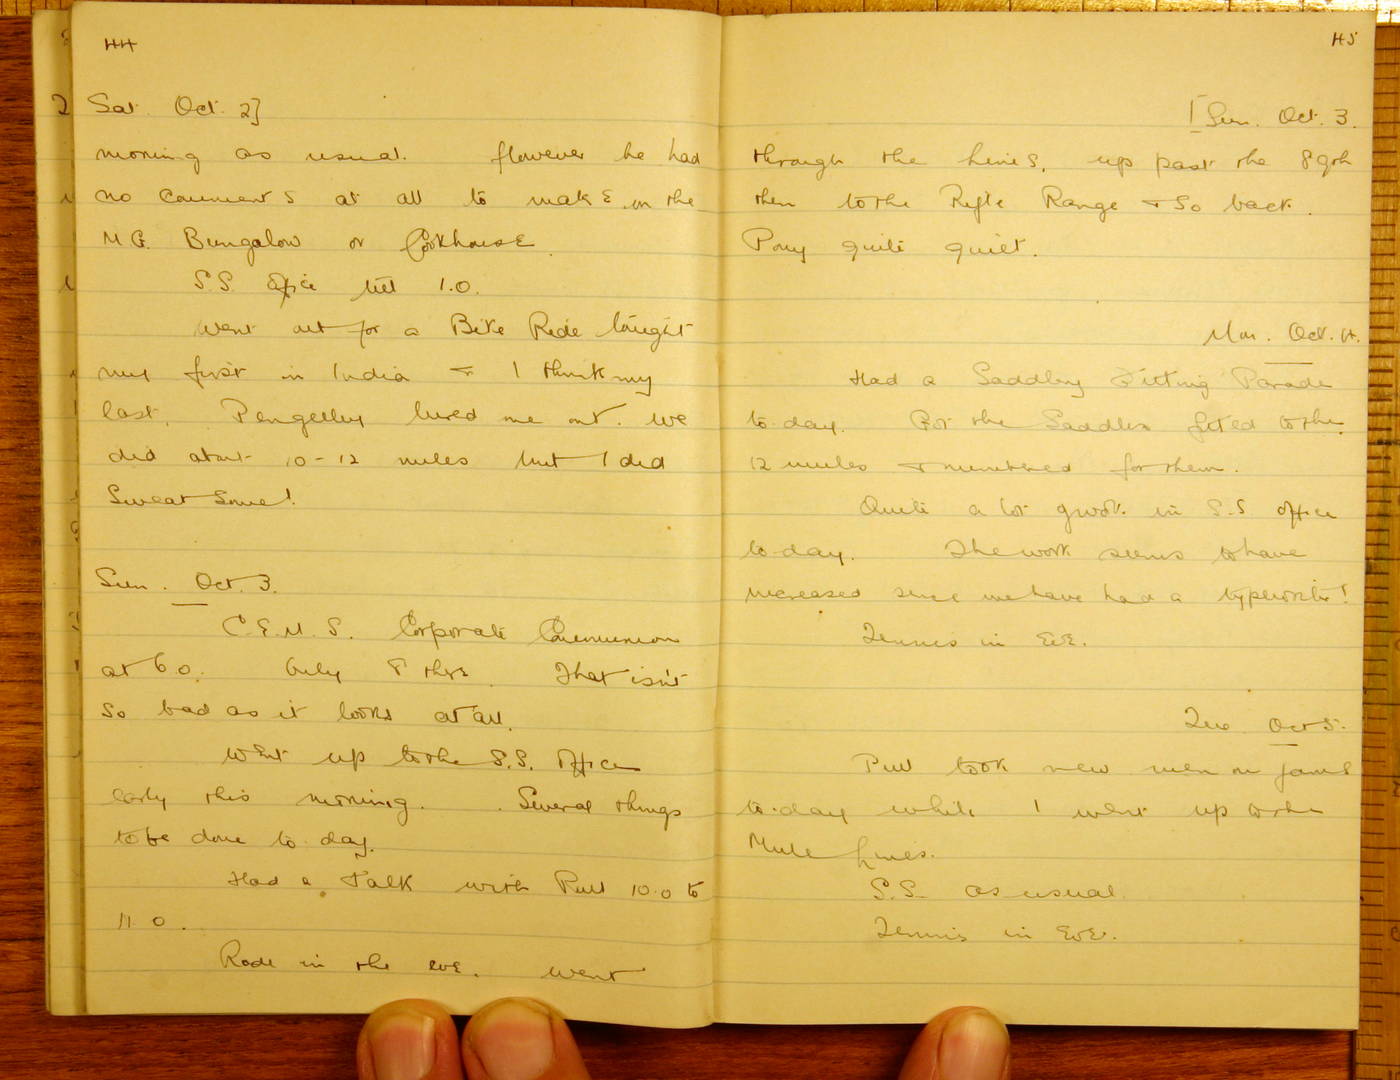 44
Sat. Oct. 2]
morning as usual. However he had
no comments at all to make on the
M.G. Bungalow or Cookhouse.
S.S. Office till 1.0.
Went out for a Bike Ride tonight
my first in India & I think my
last. Pengelley lured me out. We
did about 10-12 miles but I did
Sweat some!
Sun. Oct. 3.
C.E.M.S. Corporate Communion
at 6.0. Only 8 there. That isn't
so bad as it looks at all.
Went up to the S.S. Office
early this morning. Several things
to be done to day.
Had a Talk with Purl 10.0 to
11.0.
Rode in the eve. Went
45
[Sun. Oct. 3.
through the lines, up past the 89th
then to the Rifle Range & so back.
Pony quite quiet.
Mon. Oct. 4.
Had a Saddlery Fitting Parade
to day. Got the Saddles fitted to the
12 mules & numbered for them.
Quite a lot of work in S.S office
to-day. The work seems to have
increased since we have had a typewriter!
Tennis in Eve.
Tue Oct 5.
Purl took new men on
to-day while I went up to the
Mule Lines.
S.S. as usual.
Tennis in Eve.